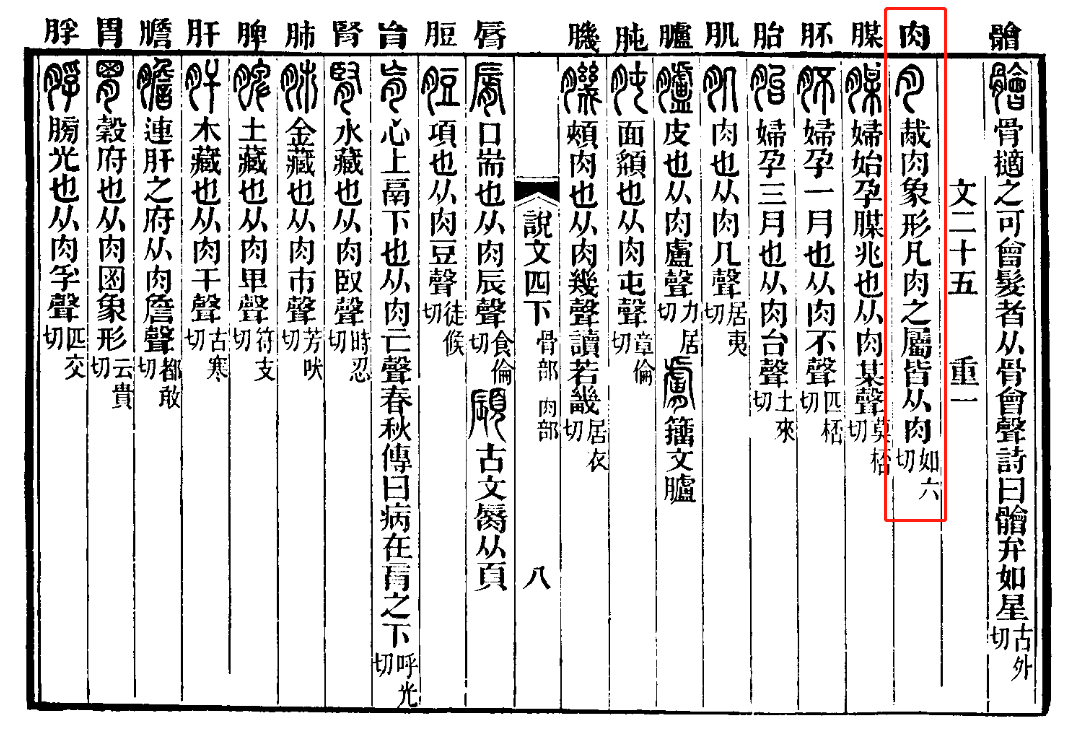 䯤 䯤骨擿之可會髮者从骨會聲詩曰䯤弁如星古外切
文二十五 重一
肉 胾肉象形凡肉之屬皆从肉如六切
腜 婦始孕腜兆也从肉某聲莫桮切
肧 婦孕一月也从肉不聲匹桮切
胎 婦孕三月也从肉台聲土來切
肌 肉也从肉几聲居夷切
臚 皮也从肉盧聲力居切 籒文臚
肫 面頯也从肉屯聲章倫切
䐚 頰肉也从肉幾聲讀若畿居衣切
說文四下 骨部 肉部 八
脣 口耑也从肉辰聲食倫切 古文脣从頁
脰 項也从肉豆聲徒候切
肓 心上鬲下也从肉亡聲春秋傳曰病在肓之下呼光切
腎 水藏也从肉臤聲時忍切
肺 金藏也从肉巿聲芳吠切
脾 土藏也从肉卑聲符支切
肝 木藏也从肉干聲古寒切
膽 連肝之府从肉詹聲都敢切
胃 穀府也从肉𡇒象形云貴切
脬 膀光也从肉孚聲匹交切